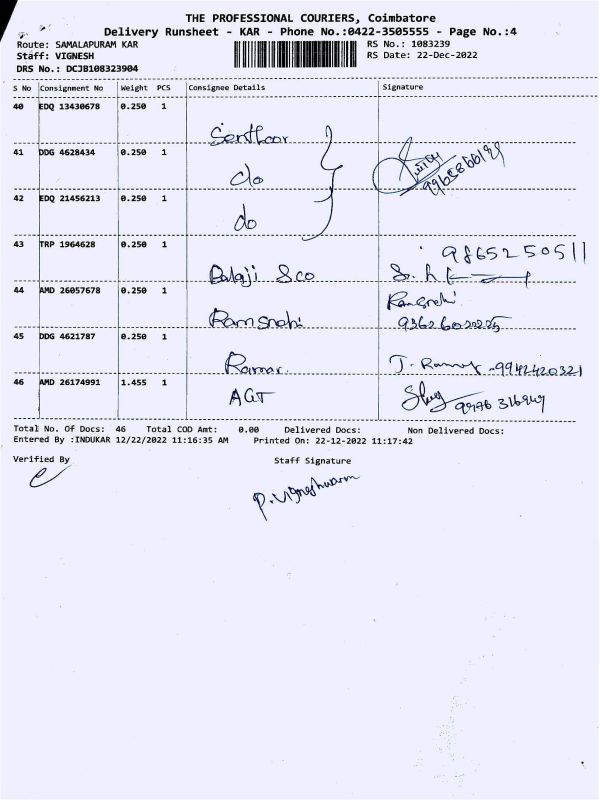 THE PROFESSIONAL COURIERS, Coimbatore
Delivery Runsheet - KAR - Phone No.:0422-3505555 - Page No.:4
Route: SAMALAPURAM KAR RS No.: 1083239
Staff: VIGNESH RS Date: 22-Dec-2022
DRS No.: DCJB108323904
S No Consignment No Weight PCS Consignee Details Signature
40 EDQ 13430678 0.250 1 Senthoor
41 DDG 4628434 0.250 1 do
42 EDQ 21456213 0.250 1 do
43 TRP 1964628 0.250 1 Balaji & co 9865250511
44 AMD 26057678 0.250 1 Ramsnehi Ramsnehi
45 DDG 4621787 0.250 1 Ramar. 9942420321
46 AMD 26174991 1.455 1 AGT
Total No. Of Docs: 46 Total COD Amt: 0.00 Delivered Docs: Non Delivered Docs:
Entered By :INDUKAR 12/22/2022 11:16:35 AM Printed On: 22-12-2022 11:17:42
Verified By Staff Signature
P. Vigneshwaran